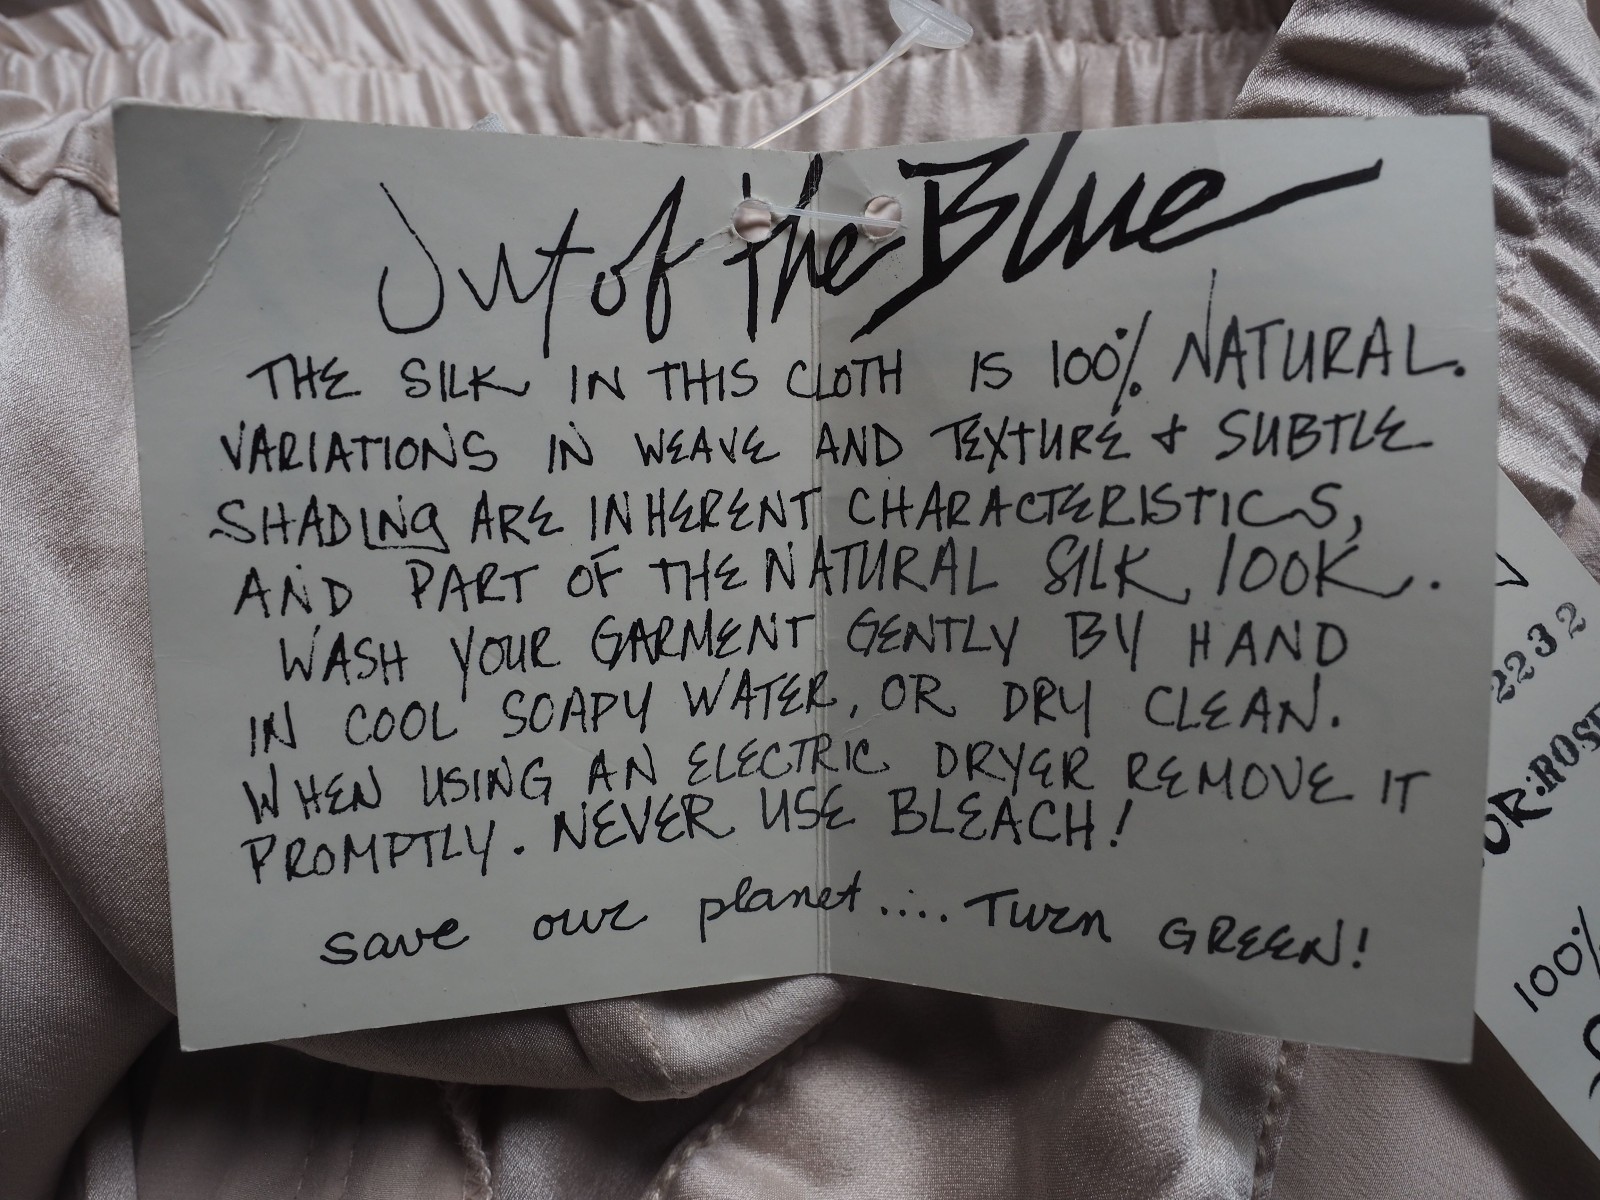 Out of the Blue
THE SILK IN THIS CLOTH IS 100% NATURAL.
VARIATIONS IN WEAVE AND TEXTURE & SUBTLE
SHADING ARE INHERENT CHARACTERISTICS,
AND PART OF THE NATURAL SILK LOOK.
WASH YOUR GARMENT GENTLY BY HAND
IN COOL SOAPY WATER, OR DRY CLEAN.
WHEN USING AN ELECTRIC DRYER REMOVE IT
PROMPTLY. NEVER USE BLEACH!
save our planet.... Turn GREEN!
2232
100%